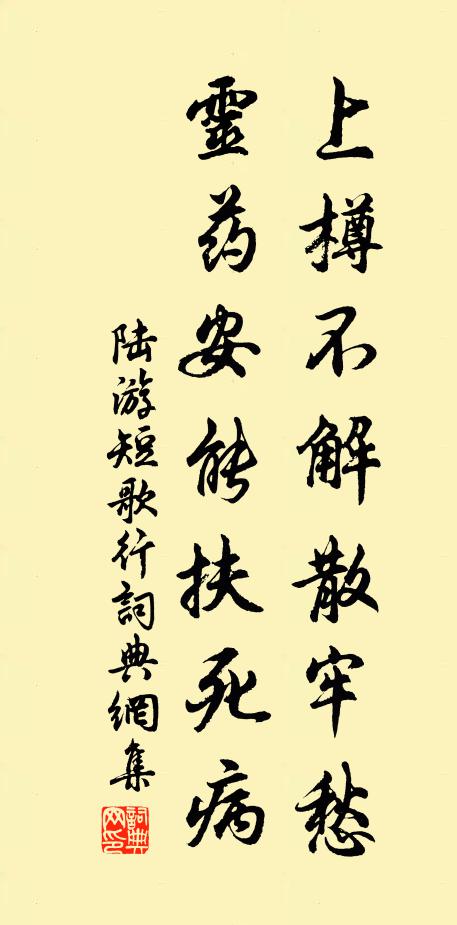 上樽不解散牢愁
靈药安能扶死病
陆游短歌行詞典網集
詞典网印